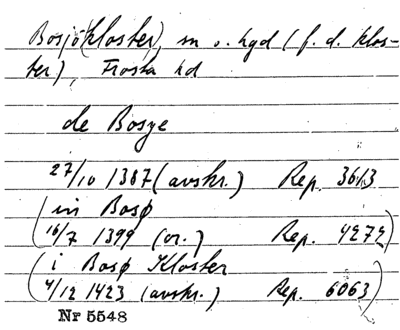 Bosjö(kloster), sn o. hgd (f. d. klos-
ter), Frosta hd
de Bosye
27/10 1387 (avskr.) Rep. 3613
(in Bosø
16/7 1399 (or.) Rep. 4272)
(i Bosø Kloster
4/12 1423 (avskr.) Rep. 6063)
Nr 5548